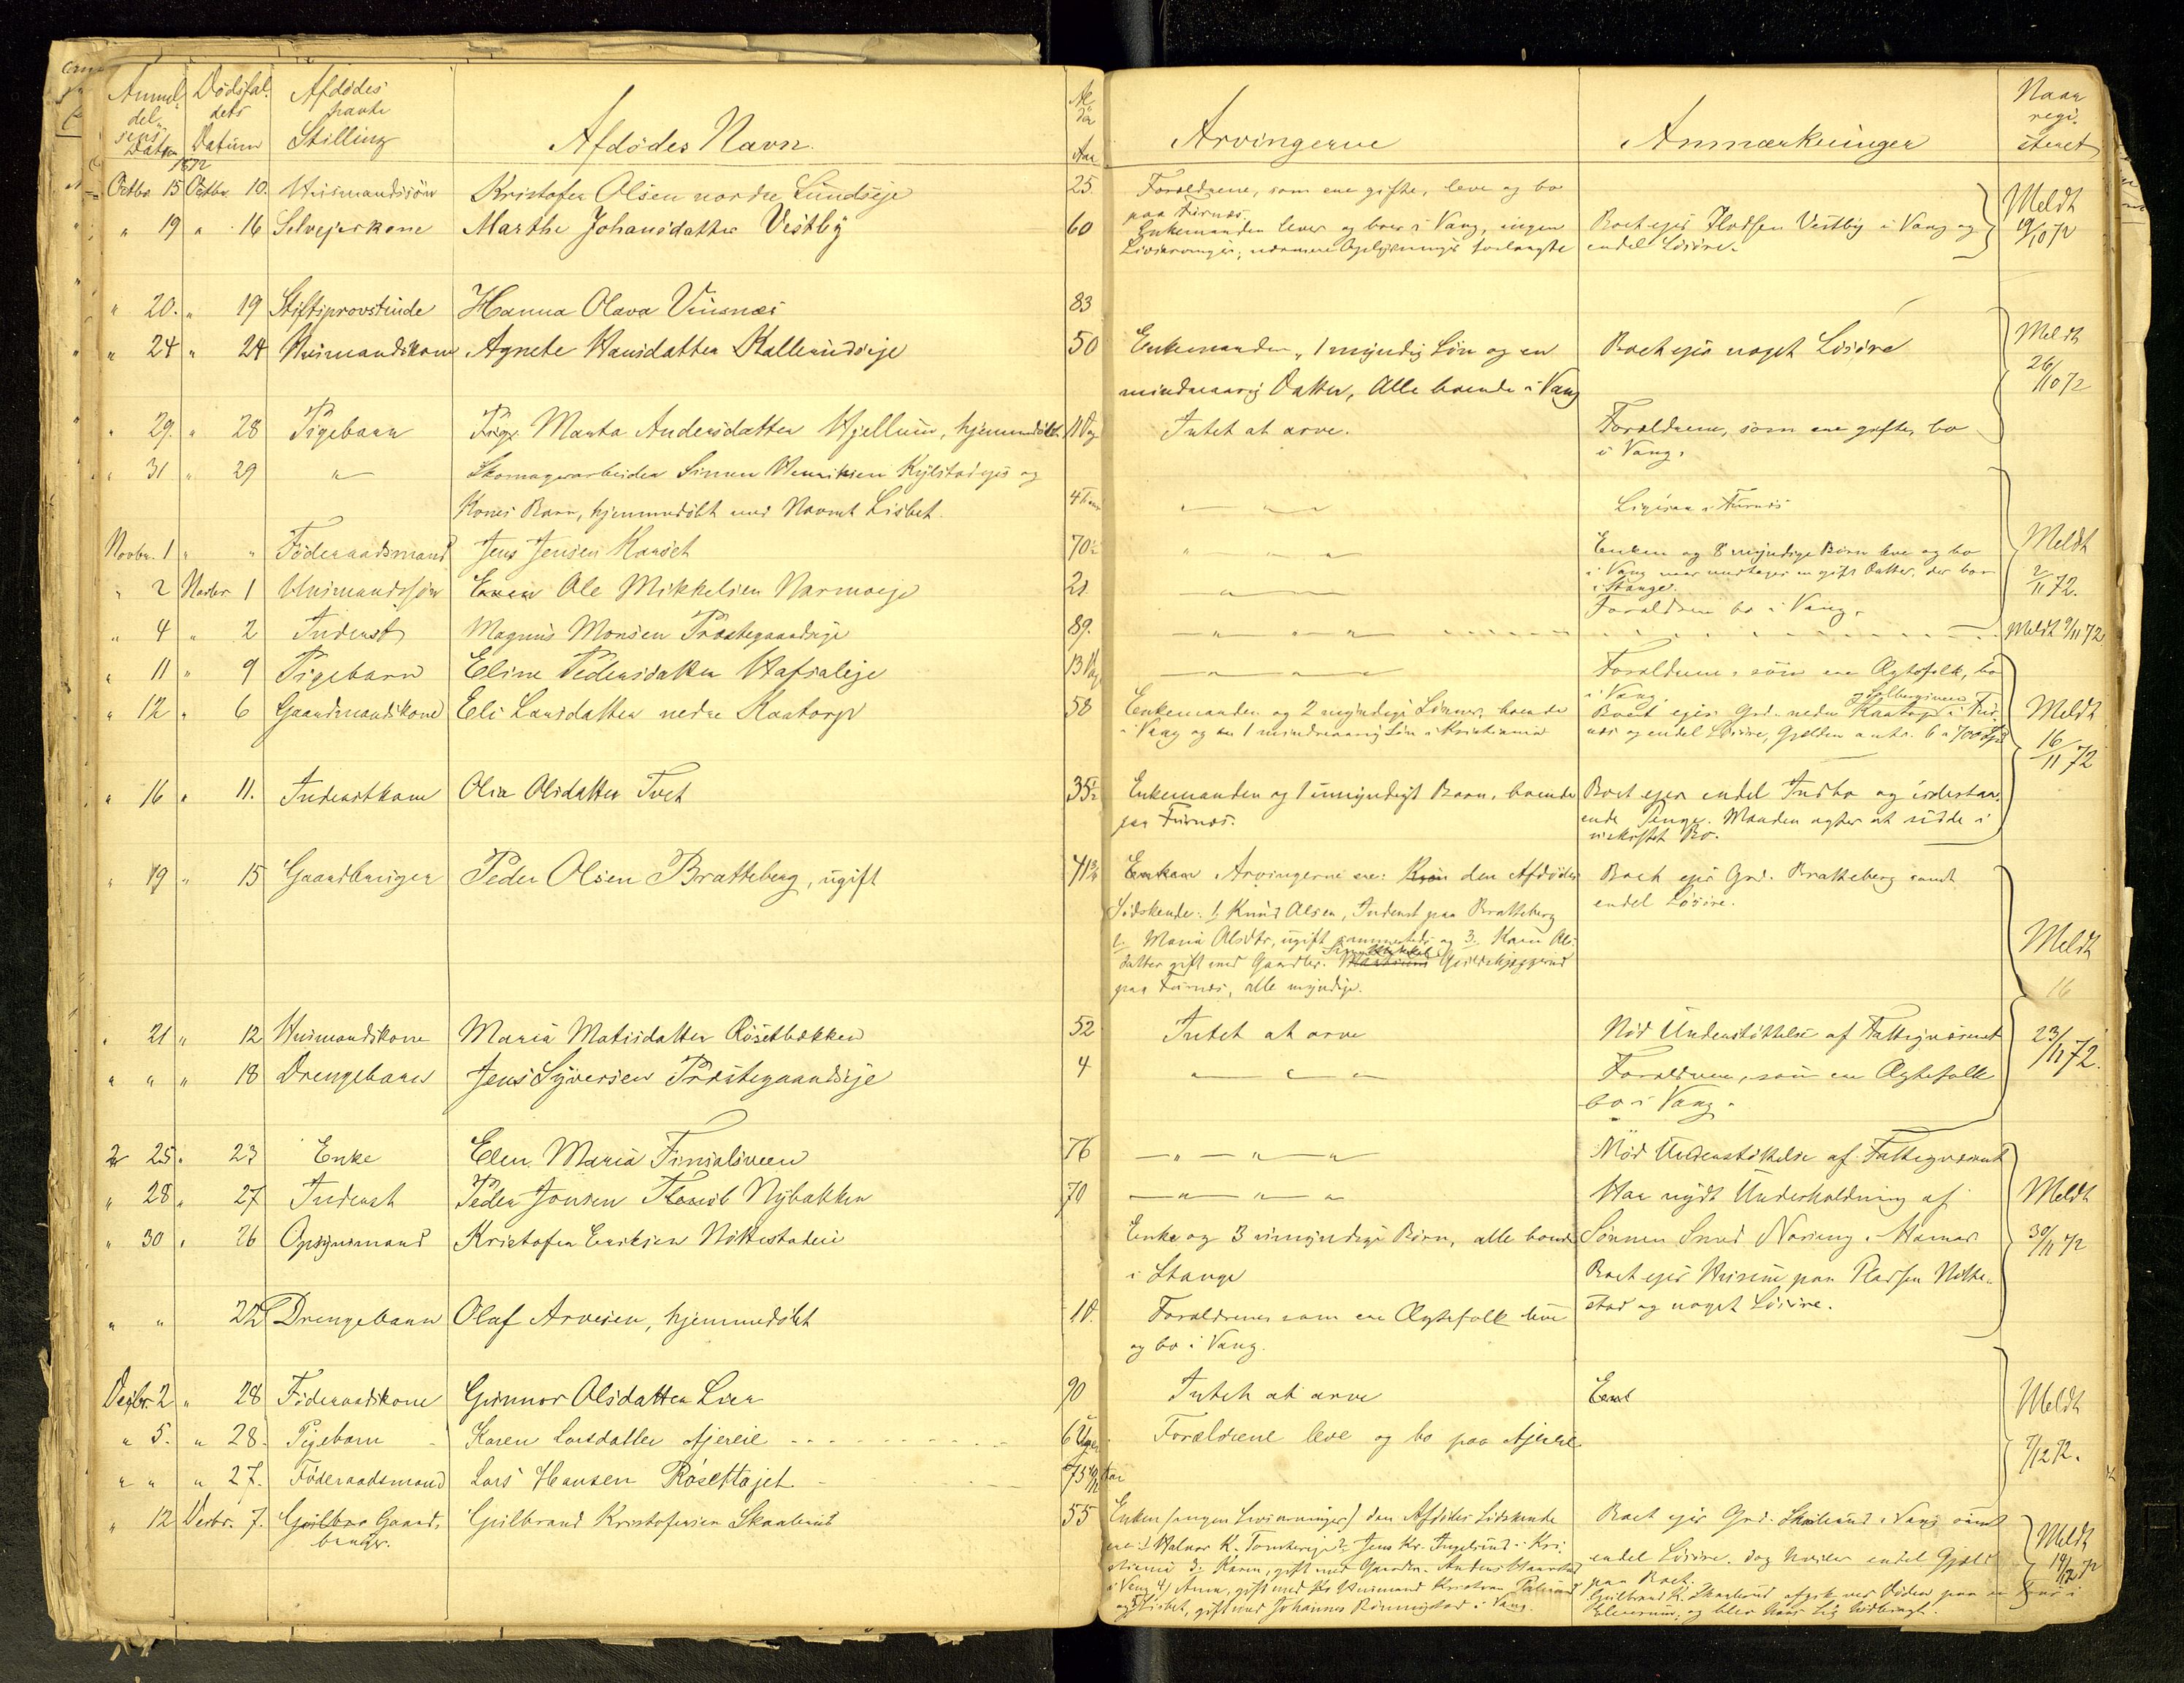 Anmel- Dødsfal- Afdødes
del- dets havte
sens Datum Stilling Afdødes Navn. Al- der Arvingerne Anmærkninger Naar regi- streret
Datum 1872 Aar
Octbr. 15 Octbr. 10. Husmandssøn Kristofer Olsen nordre Lundseje 25. Forældrene, som ere gifte, leve og bo
paa Furnæs.
" 19 " 16 Selvejerkone Marthe Johansdatter Vestby 60 Enkemanden lever og boer i Vang, ingen Boet ejer Vestby i Vang og Meldt
Livsarvinger; nærmere Oplysninger forlangte endel Løsøre. 19/10 72
" 20. " 19 Stiftsprovstinde Hanna Olava Vinsnæs 83
" 24 " 24 Husmandskone Agnete Hansdatter Kallerudseje 50 Enkemanden, 1 myndig Søn og en Boet ejer noget Løsøre Meldt
mindreaarig Datter, Alle boende i Vang 26/10 72
" 29. " 28 Pigebarn Marta Andersdatter Hjellum, hjemmedøbt 11 Dage Intet at arve. Forældrene, som ere gifte, bo
i Vang.
" 31 " 29 " Skomagerarbeider Simen Henriksen Kylstadejes og
Kones Barn, hjemmedøbt med Navnet Lisbet. 4 Timer " " " Ligesaa i Furnæs
Novbr. 1 " " Føderaadsmand Jens Jensen Karset 70½ " " " Enken og 8 myndige Børn leve og bo Meldt
i Vang naar undtages en gift Datter, der bor
i Stange. 2/11 72.
" 2 Novbr 1 Husmandssøn Ole Mikkelsen Narmoeje 21 " " Forældrene bo i Vang.
" 4 " 2 Inderst Magnus Monsen Præstegaardseje 89. " " " Meldt 9/11 72
" 11 " 9 Pigebarn Eline Pedersdatter Hafsaleje 13 Dage " " " Forældrene, som ere Ægtefolk, bo
i Vang.
" 12 " 6 Gaardmandskone Eli Larsdatter nedre Kaatorp 58 Enkemanden og 2 myndige Sønner, boende Boet ejer Grd. nedre Kaatorp i Fur- Meldt
i Vang og 1 mindreaarig Søn i Kristiania næs og endel Løsøre, Gjelden antr. 6 a 700 Spd 16/11 72
" 16 " 11. Inderstkone Olia Olsdatter Tvet 35½ Enkemanden og 1 umyndigt Barn, boende Boet ejer endel Indbo og udestaa-
paa Furnæs. ende Penge. Manden agter at sidde i
uskiftet Bo.
" 19 " 15 Gaardbruger Peder Olsen Bratteberg, ugift 41¾ Arvingerne ere: den Afdødes Boet ejer Grd. Bratteberg samt
Sødskende: 1. Knud Olsen, Inderst paa Bratteberg endel Løsøre.
2. Maria Olsdtr, ugift sammesteds og 3. Kari Ols- Meldt
datter gift med Gaardbr.
paa Furnæs, alle myndige. 16
" 21 " 12 Husmandskone Maria Matisdatter Røsetbakken 52 Intet at arve Nød Understøttelse af Fattigvæsenet 23/11 72.
" " " 18 Drengebarn Jens Syversen Præstegaardseje 4 " " " Forældrene, som ere Ægtefolk
bo i Vang.
" 25 " 23 Enke Elen Maria Finsalsveen 76 " " " Nød Understøttelse af Fattigvæsenet
" 28 " 27 Inderst Peder Jonsen Nybakken 70 " " " Har nydt Underholdning af Meldt
" 30 " 26 Opsynsmand Kristofer Eriksen Nøttestadeie Enke og 3 umyndige Børn, alle boende Sønnen Smed Noreng i Hamar 30/11 72
i Stange Boet ejer Husene paa Pladsen Nøtte-
stad og noget Løsøre.
" " 22 Drengebarn Olaf Arvesen, hjemmedøbt Forældrene som ere Ægtefolk leve
og bo i Vang.
Decbr. 2 " 28 Føderaadskone Gunnor Olsdatter Lier 90 Intet at arve Meldt
" 5. " 28. Pigebarn Karen Larsdatter Ajereie 6 Uger Forældrene leve og bo paa Ajereie 7/12 72.
" " " 27. Føderaadsmand Lars Hansen Røsettajet 75 Aar
" 12 Decbr. 7. Gaard- Gulbrand Kristofersen Skaalerud 55 Enken (ingen Livsarvinger) den Afdødes Sødskende Boet ejer Grd. Skaalerud i Vang samt
bruger. ere: 1 Halvor K. 2. Jens Kr. Ingelsrud i Kri- endel Løsøre, dog hviler endel Gjæld Meldt
stiania 3. Karen, gift med Gaardm. Anders paa Boet. 14/12 72
i Vang 4) Anne, gift med Husmand Kristian Gulbrand K. Skaalerud afgik ved Døden paa en i
og 5) Lisbet, gift med Johannes Rønningstad i Vang. Elverum, og blev hans Lig hidbragt.